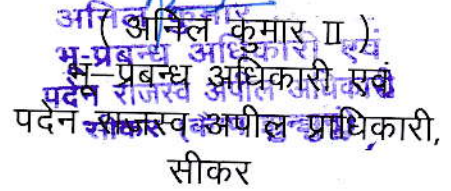 ( अनिल कुमार II )
भू-प्रबन्ध अधिकारी एवं
पदेन राजस्व अपील प्राधिकारी,
सीकर
अनिल कुमार
भू-प्रबन्ध अधिकारी एवं
पदेन राजस्व अपील अधिकारी
सीकर